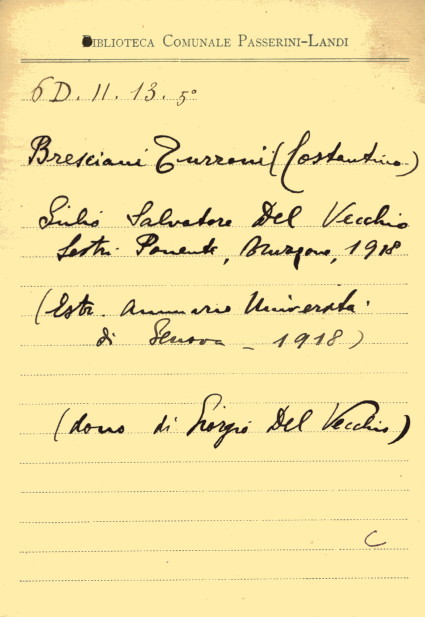 Biblioteca Comunale Passerini-Landi
6 D. II. 13. 5°
Bresciani Turroni (Costantino)
Giulio Salvatore Del Vecchio
Sestri Ponente, 1918
(Estr. Annuario Università
di Genova - 1918)
(dono di Giorgio Del Vecchio)
C